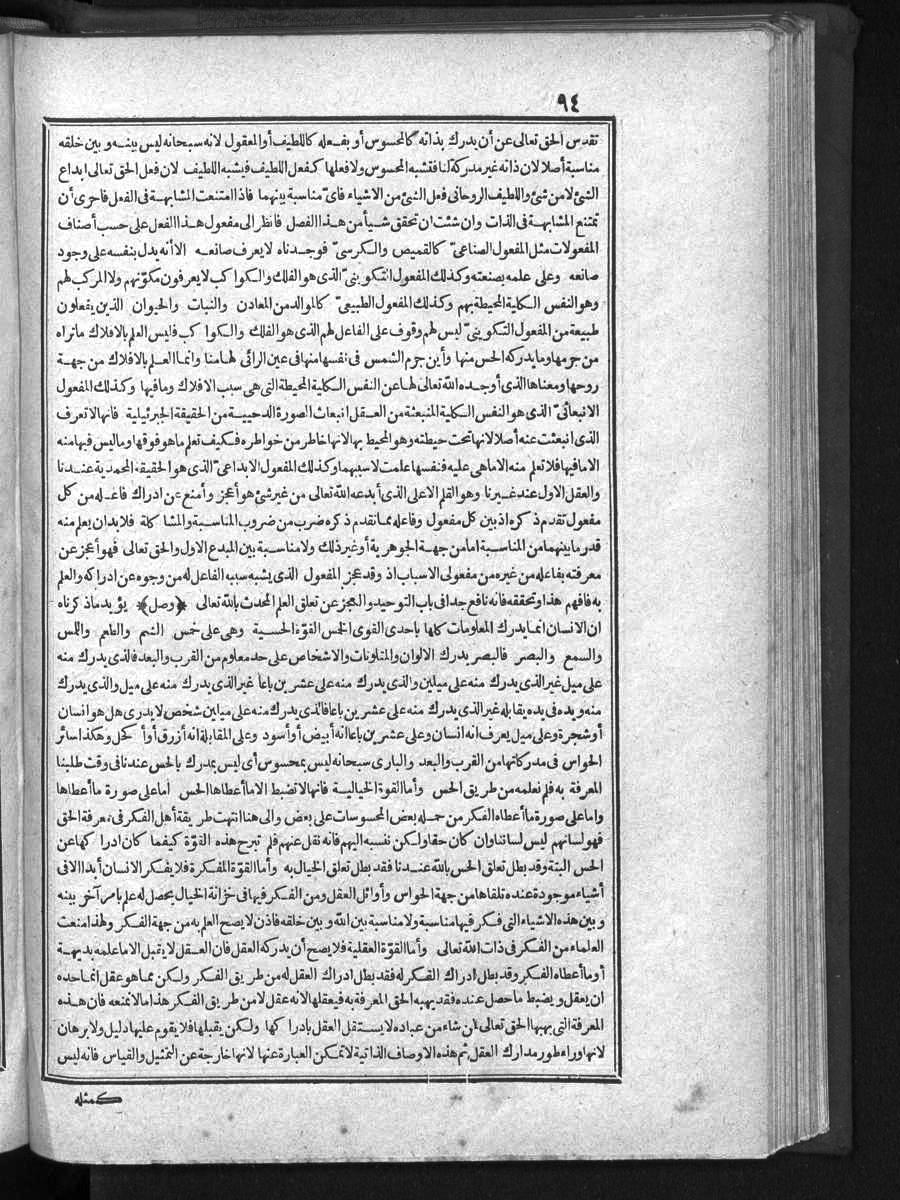 ٩٤
تقدس الحق تعالى عن أن يدرك بذاته كالمحسوس أو بفعله كاللطيف أوالمعقول لانه سبحانه ليس بينه وبين خلقه
مناسبة أصلا لان ذاته غير مدركة لنا فتشبه المحسوس ولا فعلها كفعل اللطيف فيشبه اللطيف لان فعل الحق تعالى ابداع
الشئ لامن شئ واللطيف الروحانى فعل الشئ من الاشياء فأىّ مناسبة بينهما فاذا امتنعت المشابهة فى الفعل فاحرى أن
تمتنع المشابهة فى الذات وان شئت أن تحقق شيأ من هذا الفصل فانظر الى مفعول هذا الفعل على حسب أصناف
المفعولات مثل المفعول الصناعىّ كالقميص والكرسىّ فوجدناه لا يعرف صانعه الا أنه يدل بنفسه على وجود
صانعه وعلى علمه بصنعته وكذلك المفعول التكوينىّ الذى هو الفلك والكواكب لا يعرفون مكوّنهم ولا المركب لهم
وهو النفس الكلية المحيطة بهم وكذلك المفعول الطبيعىّ كالموالد من المعادن والنبات والحيوان الذين يفعلون
طبيعة من المفعول التكوينىّ ليس لهم وقوف على الفاعل لهم الذى هو الفلك والكواكب فليس العلم بالافلاك ما تراه
من جرمها وما يدركه الحس منها وأين جرم الشمس فى نفسها منها فى عين الرائى لها منا وانما العلم بالافلاك من جهة
روحها ومعناها الذى أوجده الله تعالى لها عن النفس الكلية المحيطة التى هى سبب الافلاك وما فيها وكذلك المفعول
الانبعاثىّ الذى هو النفس الكلية المنبعثة من العقل انبعاث الصورة الدحيية من الحقيقة الجبرئيلية فانها لا تعرف
الذى انبعثت عنه أصلا لانها تحت حيطته وهو المحيط بها لانها خاطر من خواطره فكيف تعلم ما هو فوقها وما ليس فيها منه
الا ما فيها فلا تعلم منه الا ما هى عليه فنفسها علمت لا سببها وكذلك المفعول الابداعىّ الذى هو الحقيقة المحمدية عندنا
والعقل الاول عند غيرنا وهو القلم الاعلى الذى أبدعه الله تعالى من غير شئ هو أعجز وأمنع عن ادراك فاعله من كل
مفعول تقدم ذكره اذ بين كل مفعول وفاعله مما تقدم ذكره ضرب من ضروب المناسبة والمشاكلة فلا بد أن يعلم منه
قدر ما بينهما من المناسبة اما من جهة الجوهرية أو غير ذلك ولا مناسبة بين المبدع الاول والحق تعالى فهو أعجز عن
معرفته بفاعله من غيره من مفعولى الاسباب اذ وقد عجز المفعول الذى يشبه سببه الفاعل له من وجوه عن ادراكه والعلم
به فافهم هذا وتحققه فانه نافع جدا فى باب التوحيد والعجز عن تعلق العلم المحدث بالله تعالى ﴿وصل﴾ يؤيد ما ذكرناه
ان الانسان انما يدرك المعلومات كلها باحدى القوى الخمس القوّة الحسية وهى على خمس الشم والطعم واللمس
والسمع والبصر فالبصر يدرك الالوان والمتلونات والاشخاص على حد معلوم من القرب والبعد فالذى يدرك منه
على ميل غير الذى يدرك منه على ميلين والذى يدرك منه على عشرين باعا غير الذى يدرك منه على ميل والذى يدرك
منه ويده فى يده يقابله غير الذى يدرك منه على عشرين باعا فالذى يدرك منه على ميلين شخص لا يدرى هل هو انسان
أو شجرة وعلى ميل يعرف انه انسان وعلى عشرين باعا أنه أبيض أو أسود وعلى المقابلة انه أزرق أو أكحل وهكذا سائر
الحواس فى مدركاتها من القرب والبعد والبارى سبحانه ليس بمحسوس أى ليس بمدرك بالحس عندنا فى وقت طلبنا
المعرفة به فلم نعلمه من طريق الحس وأما القوة الخيالية فانها لا تضبط الا ما أعطاها الحس اما على صورة ما أعطاها
واما على صورة ما أعطاه الفكر من حمله بعض المحسوسات على بعض والى هنا انتهت طريقة أهل الفكر فى معرفة الحق
فهو لسانهم ليس لساننا وان كان حقا ولكن ننسبه اليهم فانه نقل عنهم فلم تبرح هذه القوّة كيفما كان ادراكها عن
الحس البتة وقد بطل تعلق الحس بالله عندنا فقد بطل تعلق الخيال به وأما القوّة المفكرة فلا يفكر الانسان أبدا الا فى
أشياء موجودة عنده تلقاها من جهة الحواس وأوائل العقل ومن الفكر فيها فى خزانة الخيال يحصل له علم بامر آخر بينه
وبين هذه الاشياء التى فكر فيها مناسبة ولا مناسبة بين الله وبين خلقه فاذن لا يصح العلم به من جهة الفكر ولهذا منعت
العلماء من الفكر فى ذات الله تعالى وأما القوّة العقلية فلا يصح أن يدركه العقل فان العقل لا يقبل الا ما علمه بديهة
أو ما أعطاه الفكر وقد بطل ادراك الفكر له فقد بطل ادراك العقل له من طريق الفكر ولكن مما هو عقل انما حده
ان يعقل ويضبط ما حصل عنده فقد يهبه الحق المعرفة به فيعقلها لانه عقل لا من طريق الفكر هذا ما لا نمنعه فان هذه
المعرفة التى يهبها الحق تعالى لمن شاء من عباده لا يستقل العقل بادراكها ولكن يقبلها فلا يقوم عليها دليل ولا برهان
لانها وراء طور مدارك العقل ثم هذه الاوصاف الذاتية لا تمكن العبارة عنها لانها خارجة عن التمثيل والقياس فانه ليس
كمثله